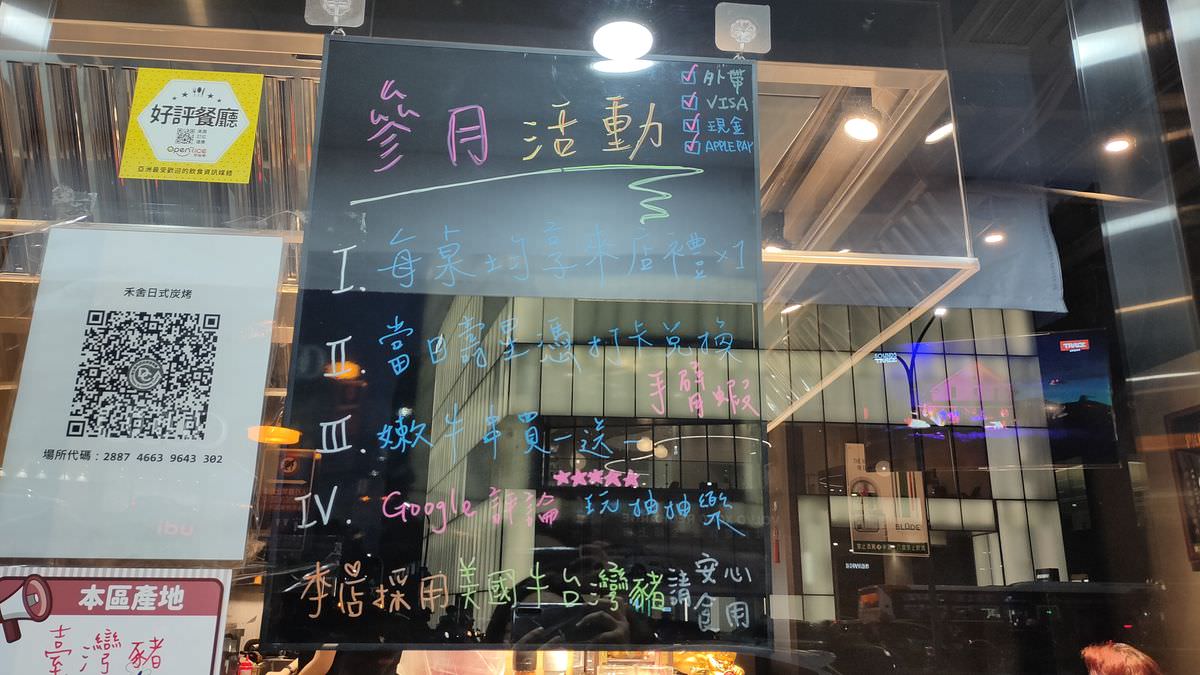 好評餐廳
OpenRice
亞洲最受歡迎的飲食資訊媒體
禾舍日式炭烤
場所代碼：2887 4663 9643 302
本區產地
臺灣豬
參月活動
外帶
VISA
現金
APPLE PAY
I. 每桌均享來店禮x1
II. 當日壽星憑打卡兌換
手臂蝦
III. 嫩牛串買一送一
IV. Google 評論 ★★★★★ 玩抽抽樂
本店採用美國牛台灣豬請安心食用
SOUNDS TRACE
TRACE
BLÜDE